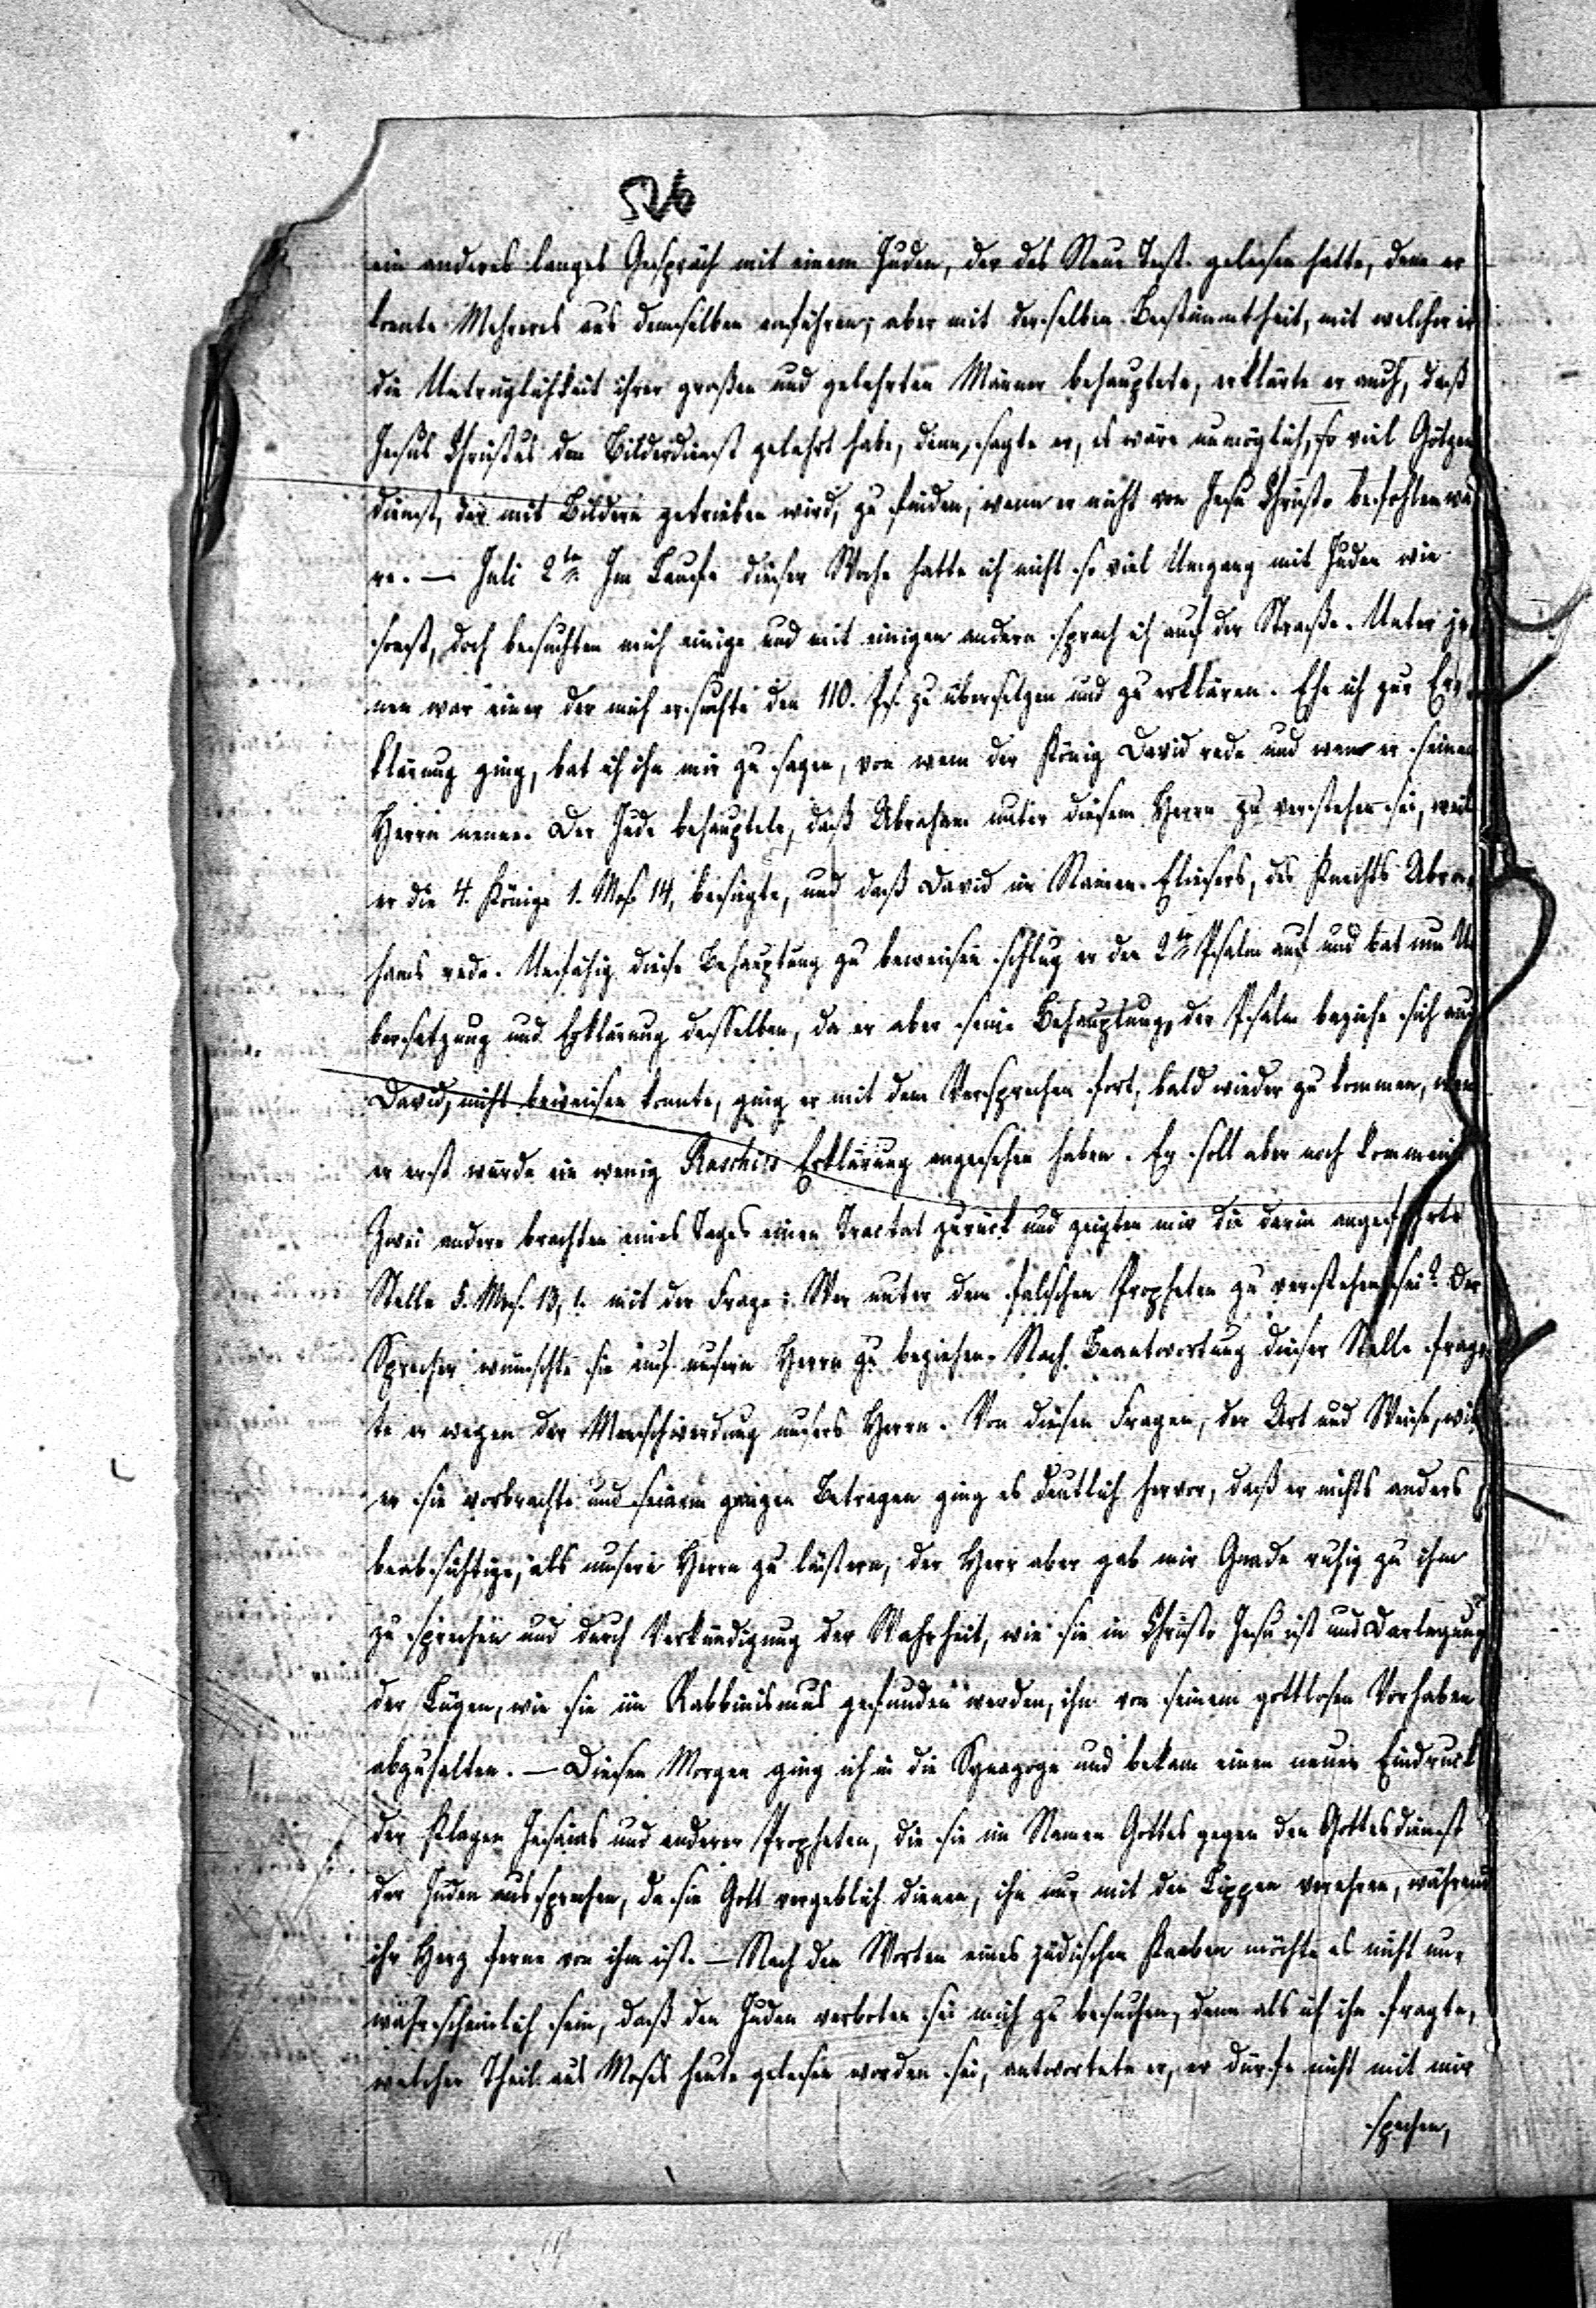 526
ein anderes langes Gespräch mit einem Juden, der das Neue Test. gelesen hatte, denn er
konnte Mehreres aus demselben anführen; aber mit derselben Bestimmtheit, mit welcher er
die Untrüglichkeit ihrer großen und gelehrten Männer behauptete, erklärte er auch, daß
Jesus Christus den Bilderdienst gelehrt habe, denn, sagte er, es wäre unmöglich, so viel Götzen
dienst, der mit Bildern getrieben wird, zu finden, wenn er nicht von Jesu Christo befohlen wä
re. — Juli 2te Im Laufe dieser Woche hatte ich nicht so viel Umgang mit Juden wie
sonst, doch besuchten mich einige und mit einigen andern sprach ich auf der Straße. Unter je
nen war einer der mich ersuchte den 110. Ps. zu übersetzen und zu erklären. Ehe ich zur Er
klärung ging, bat ich ihn mir zu sagen, von wem der König David rede und wen er seinen
Herrn nenne. Der Jude behauptete, daß Abraham unter diesem Herrn zu verstehen sei, weil
er die 4. Könige 1. Mos. 14, besiegte, und daß David im Namen Eliesers, des Knechts Abra
hams rede. Unfähig diese Behauptung zu beweisen schlug er den 2ten Psalm auf und bat um Ue
bersetzung und Erklärung desselben, da er aber seine Behauptung, der Psalm beziehe sich auf
David, nicht beweisen konnte, ging er mit dem Versprechen fort, bald wieder zu kommen, wenn
er erst würde ein wenig Raschis Erklärung angesehen haben. Er soll aber noch kommen.
Zwei andere brachten eines Tages einen Tractat zurück und zeigten mir die darin angeführte
Stelle 5. Mos. 13, 1. mit der Frage: Wer unter dem falschen Propheten zu verstehen sei? Der
Sprecher wünschte sie auf unsern Herrn zu beziehen. Nach Beantwortung dieser Stelle frag
te er wegen der Menschwerdung unsers Herrn. Von diesen Fragen, der Art und Weise, wie
er sie vorbrachte und seinem ganzen Betragen ging es deutlich hervor, daß er nichts anders
beabsichtige, als unsern Herrn zu lästern, der Herr aber gab mir Gnade ruhig zu ihm
zu sprechen und durch Verkündigung der Wahrheit, wie sie in Christo Jesu ist und Darlegung
der Lügen, wie sie im Rabbinismus gefunden werden, ihn von seinem gottlosen Vorhaben
abzuhalten. — Diesen Morgen ging ich in die Synagoge und bekam einen neuen Eindruck
der Klagen Jesaias und anderer Propheten, die sie im Namen Gottes gegen den Gottesdienst
der Juden aussprechen, da sie Gott vergeblich dienen, ihn nur mit den Lippen verehren, während
ihr Herz ferne von ihm ist. — Nach den Worten eines jüdischen Knaben möchte es nicht un
wahrscheinlich sein, daß den Juden verboten sei mich zu besuchen, denn als ich ihn fragte,
welcher Theil aus Moses heute gelesen worden sei, antwortete er, er dürfe nicht mit mir
sprechen,